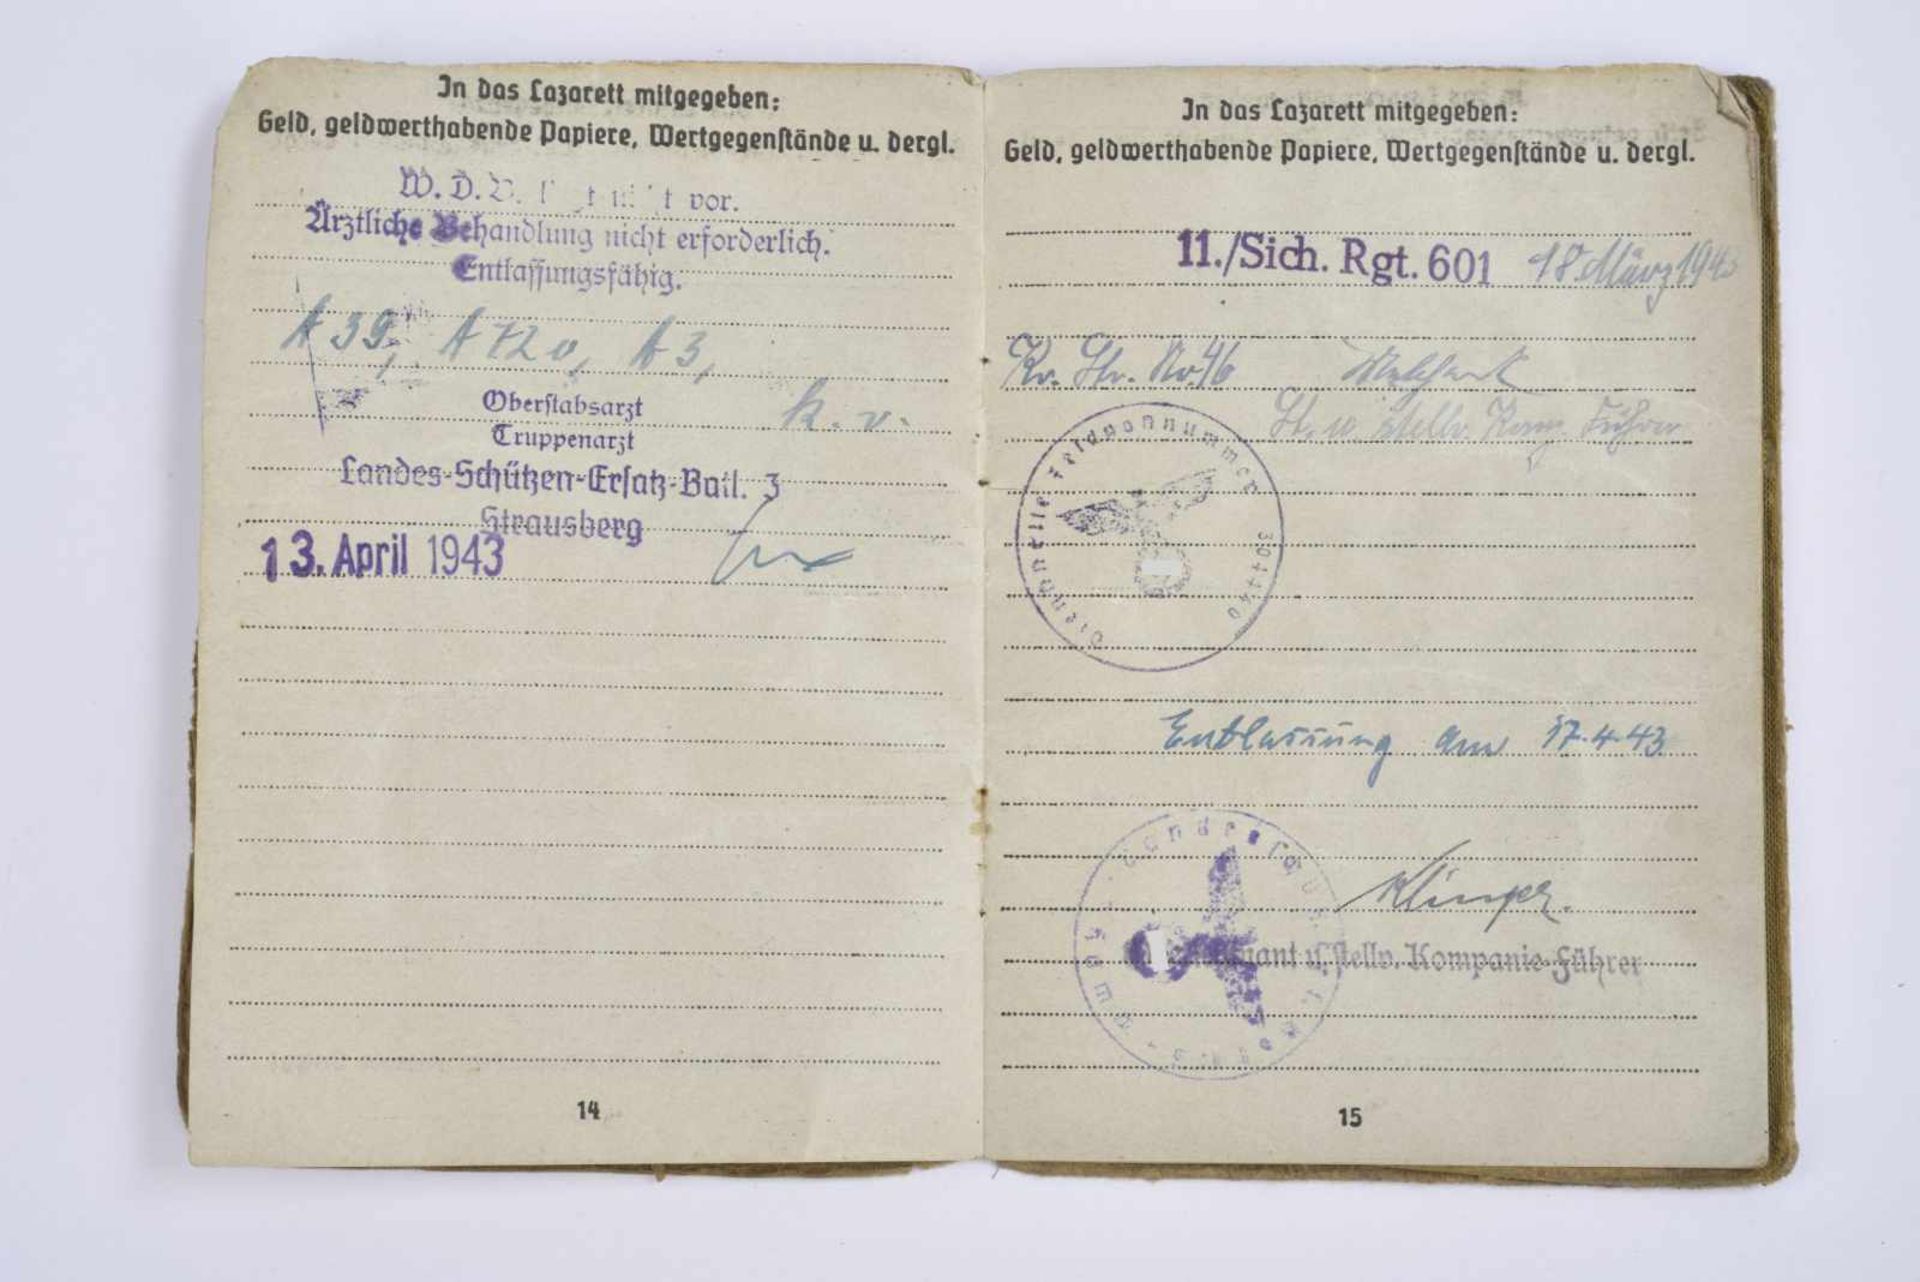 In das Lazarett mitgegeben:
Geld, geldwerthabende Papiere, Wertgegenstände u. dergl.
W.D.B. vor.
Ärztliche Behandlung nicht erforderlich.
Entlassungsfähig.
A 39, A 72 v, A 3,
k. v.
Oberstabsarzt
Truppenarzt
Landes-Schützen-Ersatz-Batl. 3
Strausberg
13. April 1943
14
In das Lazarett mitgegeben:
Geld, geldwerthabende Papiere, Wertgegenstände u. dergl.
11./Sich. Rgt. 601 18 März 1943
Kr. Str. No. 46
Lt. u. stellv. Komp. Führer
Dienststelle Feldpostnummer
Entlassung am 17.4.43
Klinger.
Leutnant u. stellv. Kompanie-Führer
15